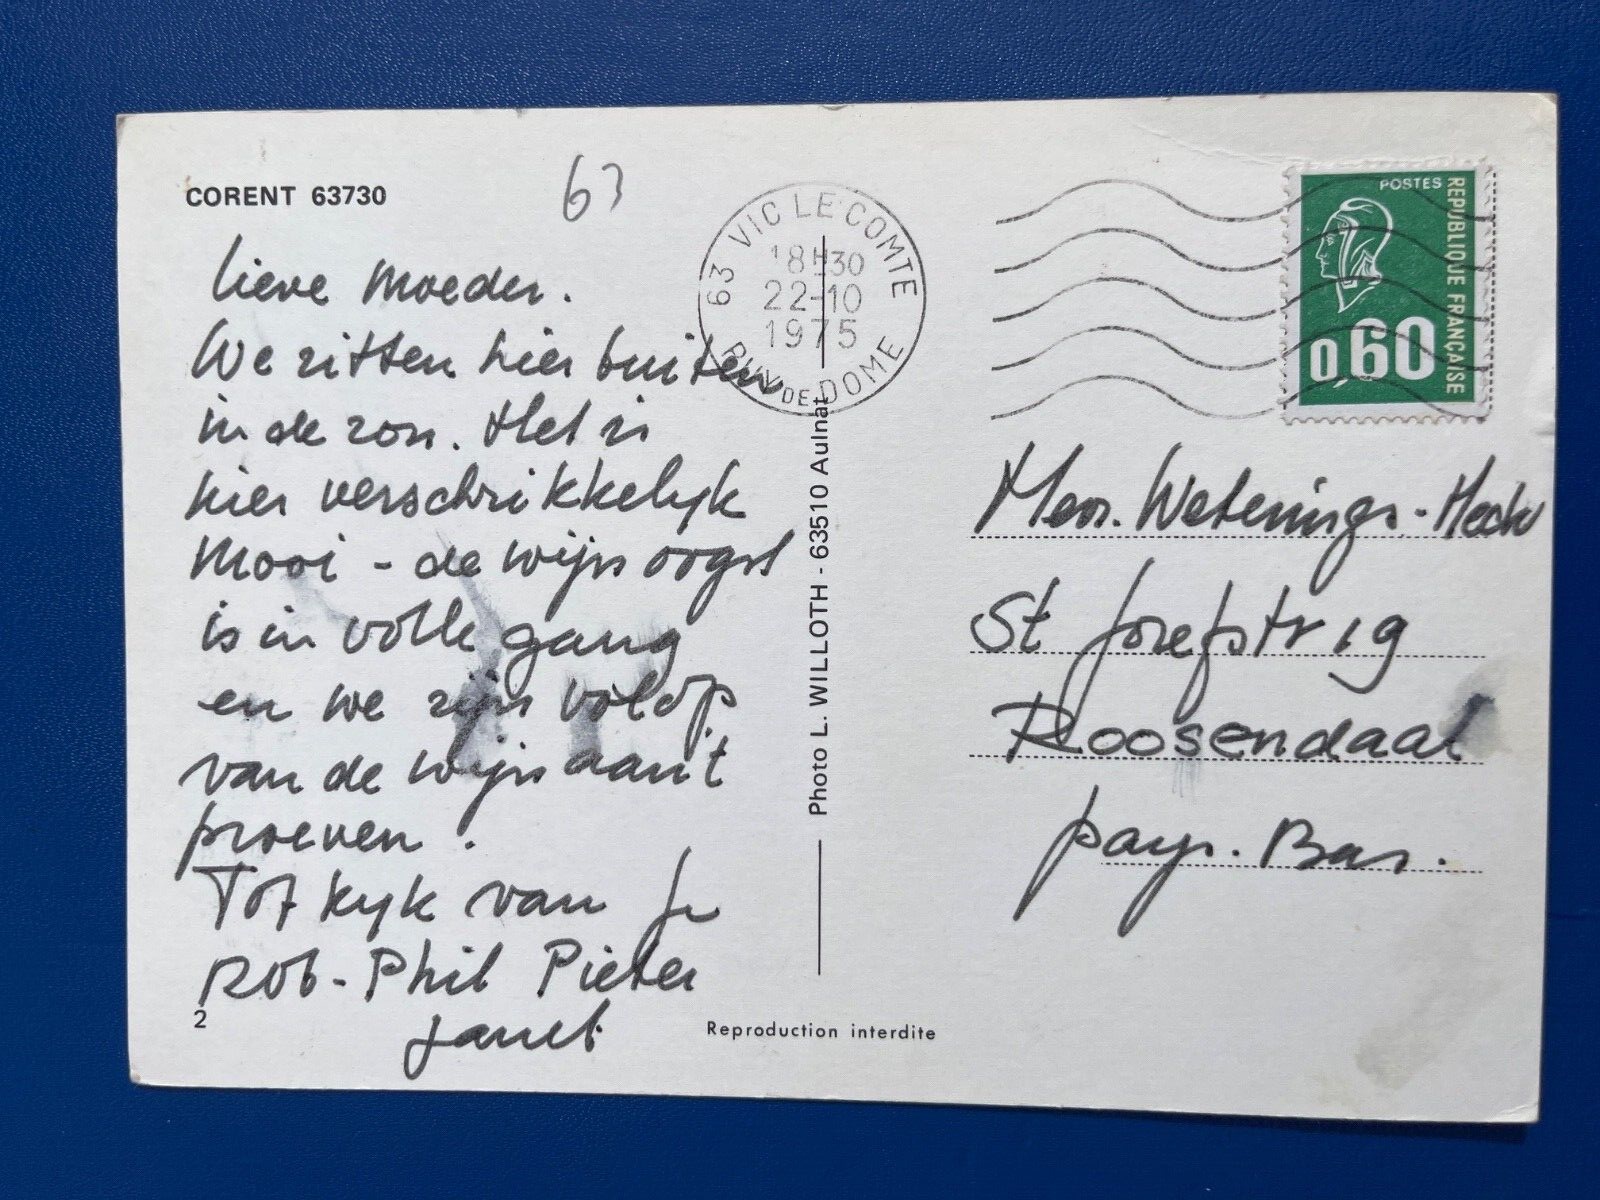 CORENT 63730
63
lieve Moeder.
We zitten hier buiten
in de zon. Het is
hier verschrikkelyk
mooi - de wijnoogst
is in volle gang
en we zijn volop
van de wijn aan't
proeven.
Tot kyk van je
Rob - Phil Pieter
Janet
2
Reproduction interdite
Photo L. WILLOTH - 63510 Aulnat
63 VIC LE COMTE
18H30
22-10
1975
PUY DE DOME
POSTES
REPUBLIQUE FRANÇAISE
0,60
Wetenings-
St Josefstr 19
Roosendaal
pays. Bas.